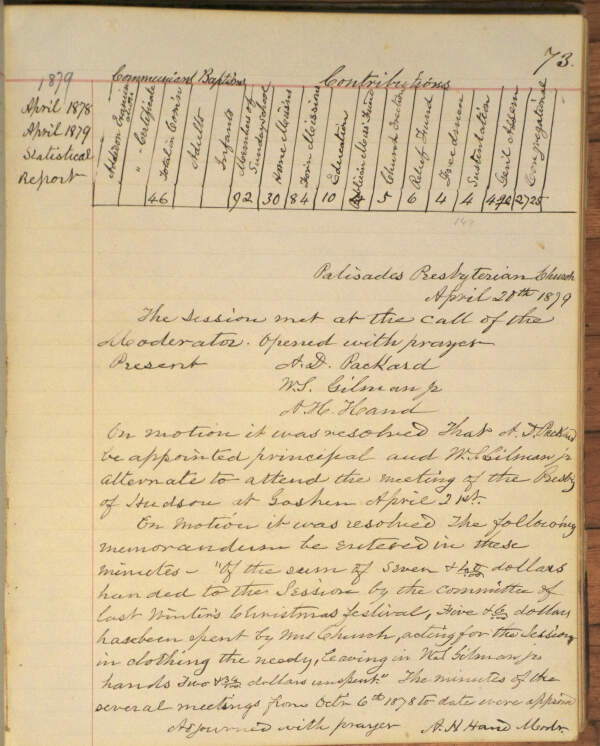 73.
1879
April 1878
April 1879
Statistical
Report
Communion Baptisms Contributions
Addition Examin
" Certificate
Total in Comn
Adults
Infants
Members of Sunday School
Home Missions
Forn Missions
Education
Church Erection
Relief Fund
Freedmen
Sustentation
Genl Assem
Congregational
46 92 30 84 10 5 6 4 4 2725
Palisades Presbyterian Church
April 20th 1879
The Session met at the call of the
Moderator. Opened with prayer
Present A. D. Packard
W. S. Gilman jr
A. H. Hand
On motion it was resolved That A. D. Packard
be appointed principal and W. S. Gilman jr
alternate to attend the meeting of the Presby
of Hudson at Goshen April 21st.
On motion it was resolved The following
memorandum be entered in these
minutes - "Of the sum of Seven & dollars
handed to the Session by the committee of
last Winter's Christmas festival, Five & dollars
has been spent by Mrs Church, acting for the Session
in clothing the needy, leaving in W. S. Gilman jrs
hands Two & dollars unspent." The minutes of the
several meetings from Octr 6th 1878 to date were approved
Adjourned with prayer A. H. Hand Modr.